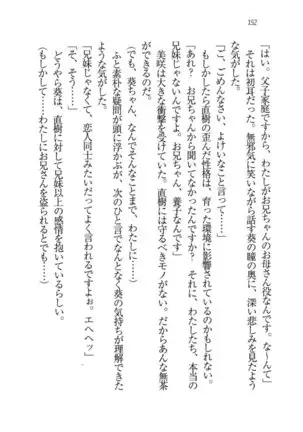 152
「はい。父子家庭ですから、わたしがお兄ちゃんのお母さん役なんです。な〜んて」
それは初耳だった。無邪気に笑いながら話す葵の瞳の奥に、深い悲しみを見たよう
な気がした。
「ご、ごめんなさい、よけいなこと言って……」
もしかしたら直樹の歪んだ性格は、育った環境に影響されているのかもしれない。
「あれ？　お兄ちゃんから聞いてませんでしたか？　それに、わたしたち、本当の
兄妹じゃないんですよ。お兄ちゃん、養子なんです」
美咲は大きな衝撃を受けていた。直樹には守るべきモノがない。だからあんな無茶
ができるのだ。
「でも、葵ちゃん、なんでそんなこと……」
ふと素朴な疑問が頭に浮かぶが、次のひと言でなんとなく葵の気持ちが理解できた
ような気がした。
「兄妹じゃなくて、恋人同士みたいだってよく言われるですよぉ。エヘヘッ」
「そ、そう……」
どうやら葵は、直樹に対して兄妹以上の感情を抱いているらしい。
（もしかして……わたしにお兄さんを盗られるとでも……）